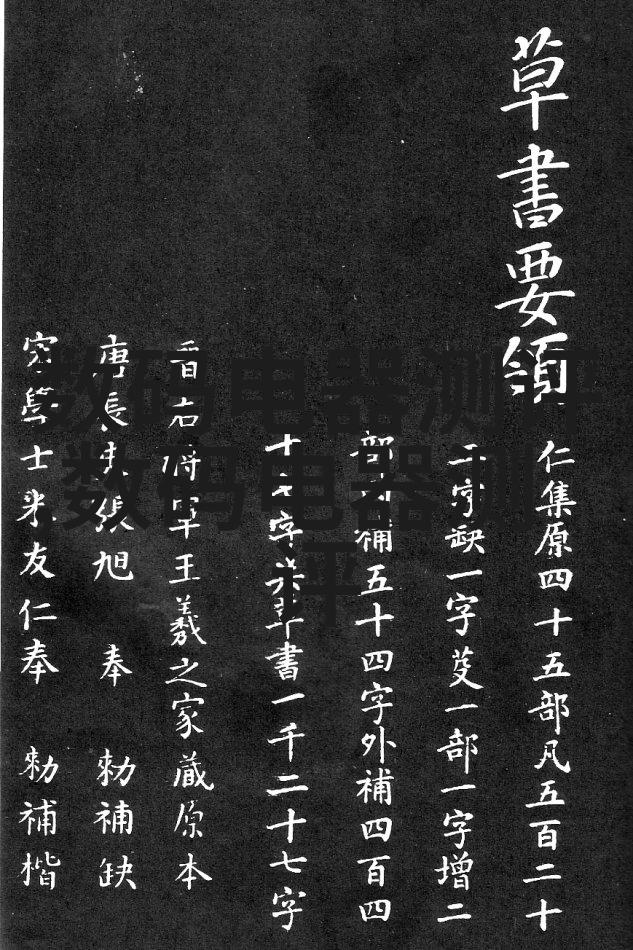 草書要領
仁集原四十五部凡五百二十
二字缺一字芟一部一字增二
部內補五十四字外補四百四
十七字共草書一千二十七字
晋右將軍王羲之家藏原本
唐長史張旭 奉 勅補缺
宋學士米友仁奉 勅補楷
数码电器测评
数码电器测
评